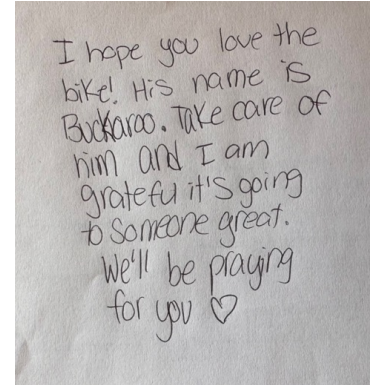 I hope you love the
bike! His name is
Buckaroo. Take care of
him and I am
grateful it's going
to someone great.
We'll be praying
for you ♡